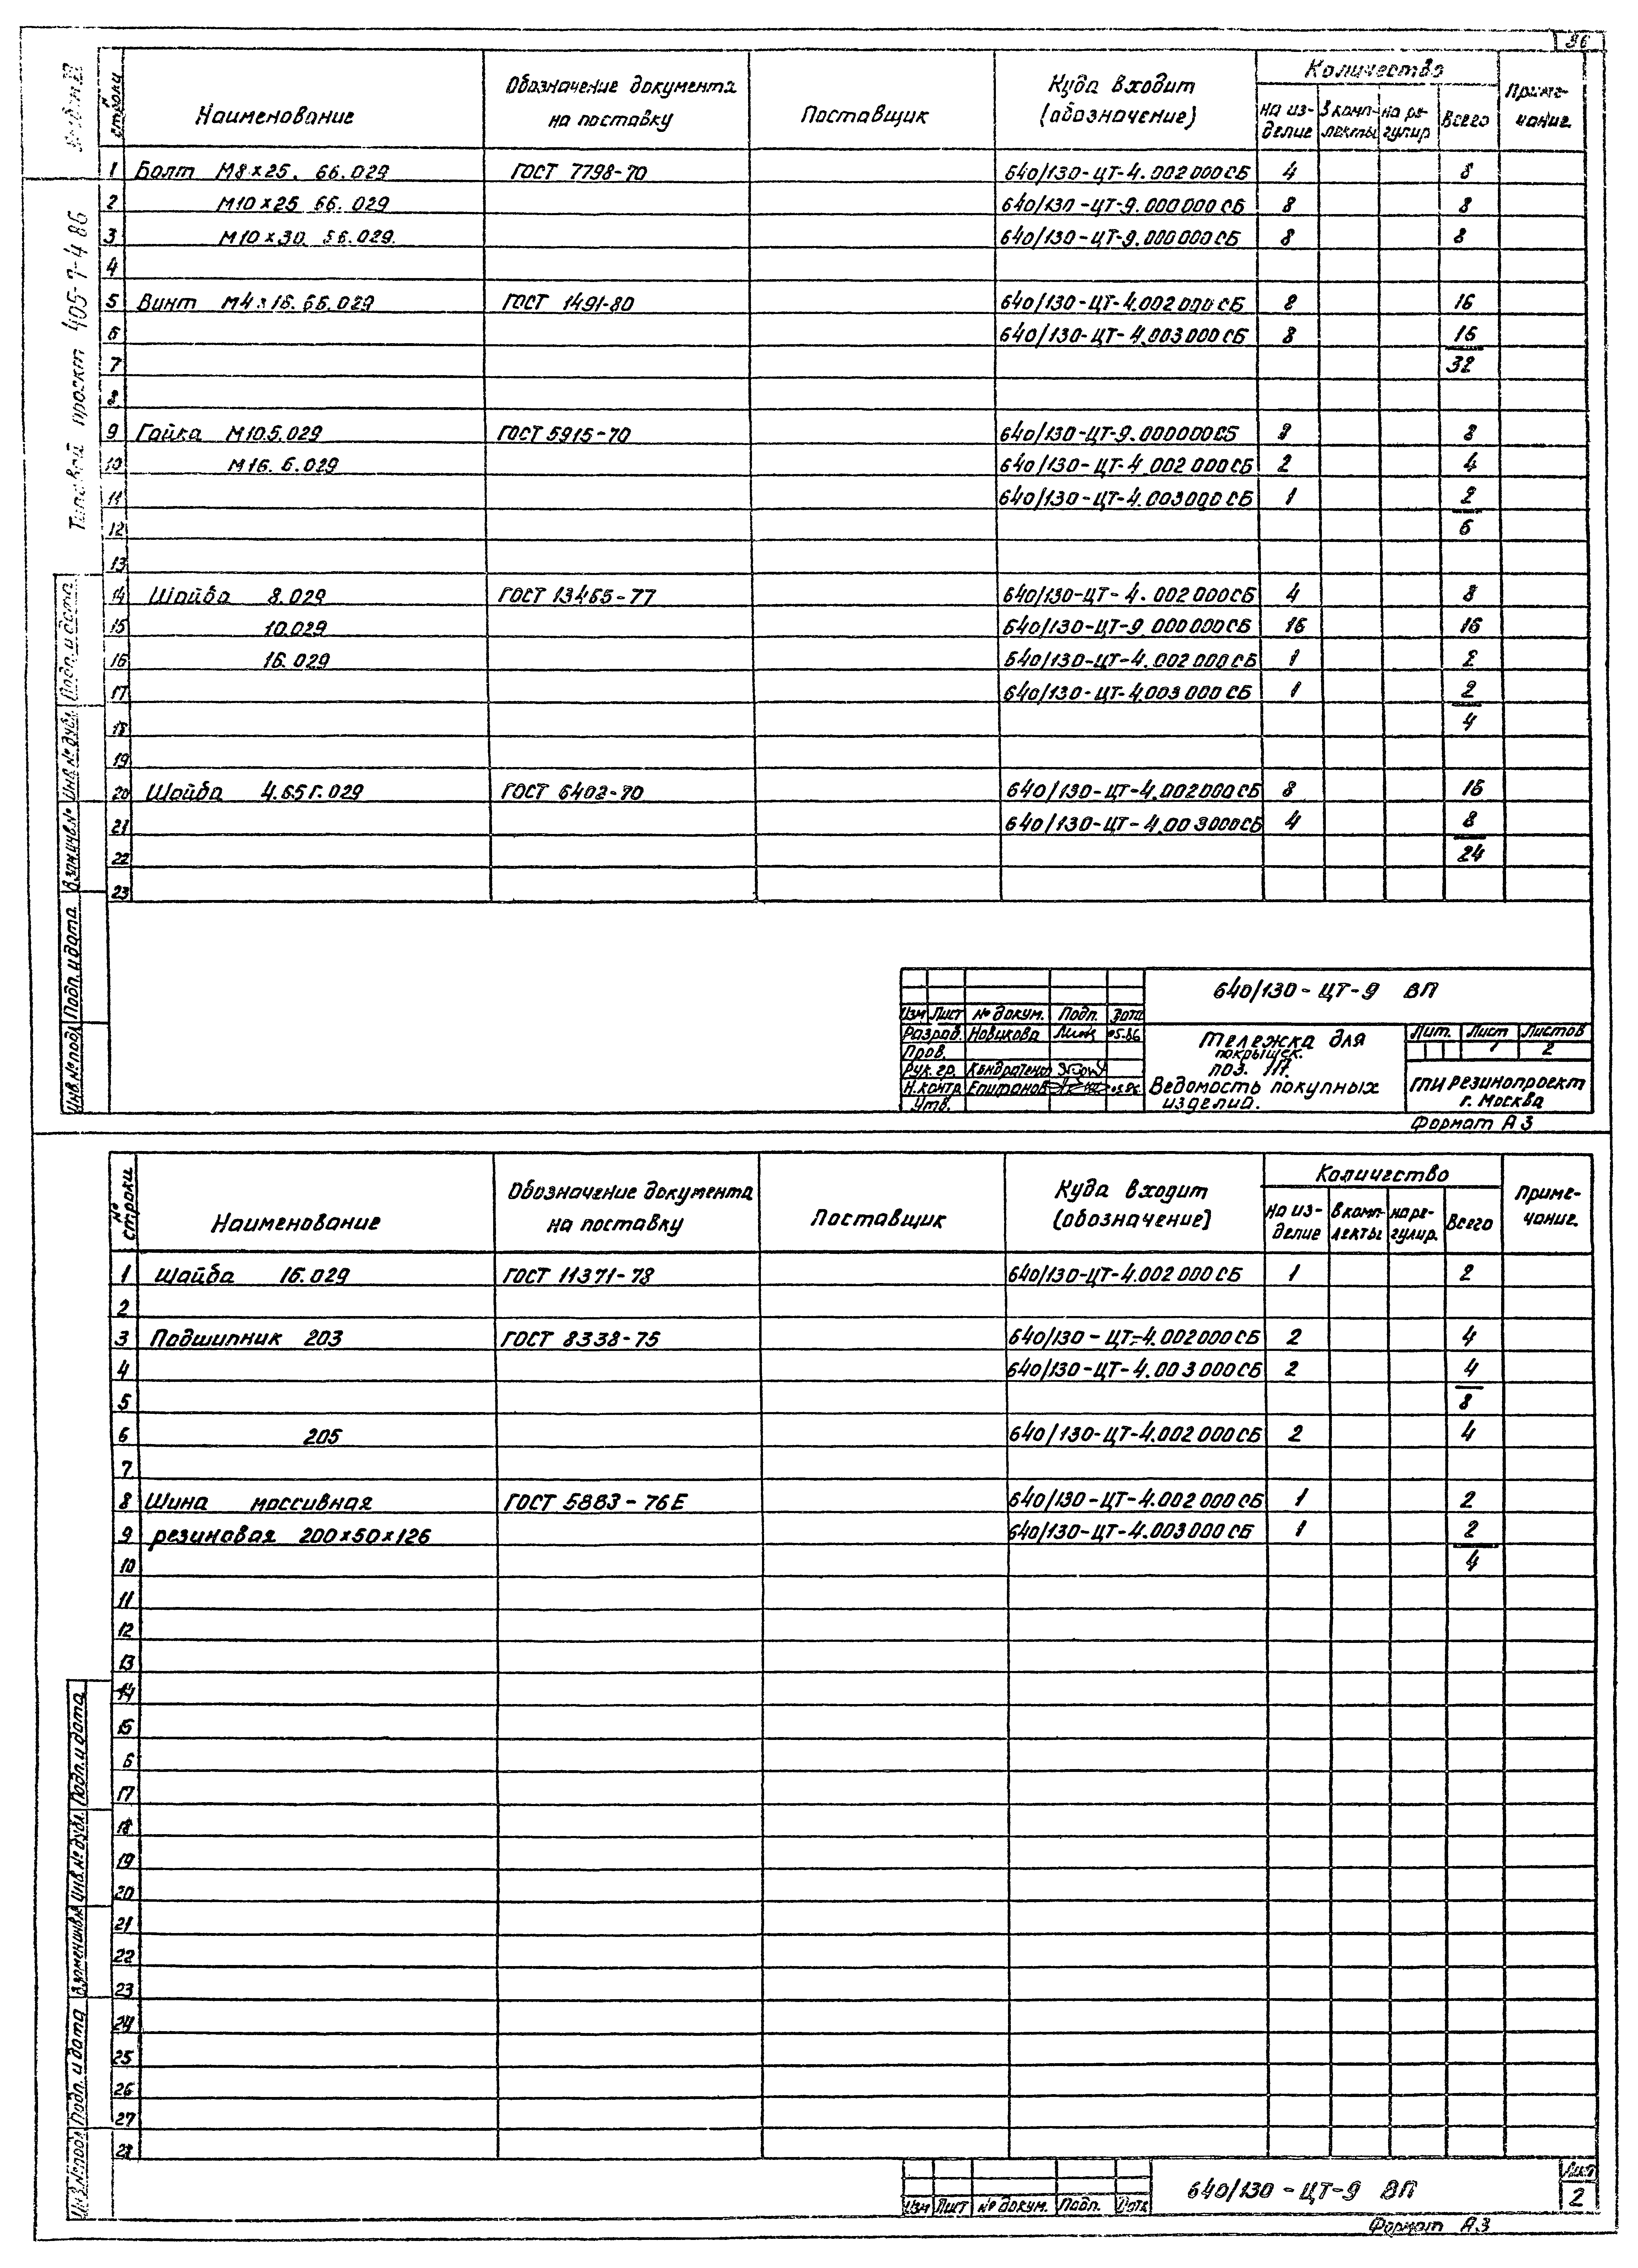 96
Типовой проект 405-7-4 86
№ строки Наименование Обозначение документа на поставку Поставщик Куда входит (обозначение) Количество на изделие в комплекты на регулир Всего Примечание.
1 Болт М8×25. 66.029 ГОСТ 7798-70 640/130-ЦТ-4.002000СБ 4 8
2 М10×25 66.029 640/130-ЦТ-9.000000СБ 8 8
3 М10×30. 56.029. 640/130-ЦТ-9.000000СБ 8 8
4
5 Винт М4×16.66.029 ГОСТ 1491-80 640/130-ЦТ-4.002000СБ 8 16
6 640/130-ЦТ-4.003000СБ 8 16
7 32
8
9 Гайка М10.5.029 ГОСТ 5915-70 640/130-ЦТ-9.000000СБ 8 8
10 М16.6.029 640/130-ЦТ-4.002000СБ 2 4
11 640/130-ЦТ-4.003000СБ 1 2
12 6
13
14 Шайба 8.029 ГОСТ 13465-77 640/130-ЦТ-4.002000СБ 4 8
15 10.029 640/130-ЦТ-9.000000СБ 16 16
16 16.029 640/130-ЦТ-4.002000СБ 1 2
17 640/130-ЦТ-4.003000СБ 1 2
18 4
19
20 Шайба 4.65Г.029 ГОСТ 6402-70 640/130-ЦТ-4.002000СБ 8 16
21 640/130-ЦТ-4.003000СБ 4 8
22 24
23
Инв.№подл. Подп. и дата Взам.инв.№ Инв.№ дубл. Подп. и дата
640/130-ЦТ-9 ВП
Изм Лист № докум. Подп. Дата
Разраб. Новикова 05.86
Пров.
Рук.гр. Кондратенко
Н.контр Епифанов
Утв.
Тележка для
покрышек.
поз. 117.
Ведомость покупных
изделий.
Лит. Лист Листов
1 2
ГПИ Резинопроект
г. Москва
Формат А3
№ строки Наименование Обозначение документа на поставку Поставщик Куда входит (обозначение) Количество на изделие в комплекты на регулир. Всего Примечание.
1 Шайба 16.029 ГОСТ 11371-78 640/130-ЦТ-4.002000СБ 1 2
2
3 Подшипник 203 ГОСТ 8338-75 640/130-ЦТ-4.002000СБ 2 4
4 640/130-ЦТ-4.003000СБ 2 4
5 8
6 205 640/130-ЦТ-4.002000СБ 2 4
7
8 Шина массивная ГОСТ 5883-76Е 640/130-ЦТ-4.002000СБ 1 2
9 резиновая 200×50×126 640/130-ЦТ-4.003000СБ 1 2
10 4
11
12
13
14
15
6
17
18
19
20
21
22
23
24
25
26
27
28
Инв.№подл Подп. и дата Взамен инв.№ Инв.№ дубл. Подп. и дата
Изм Лист № докум. Подп. Дата
640/130-ЦТ-9 ВП
Лист
2
Формат А3